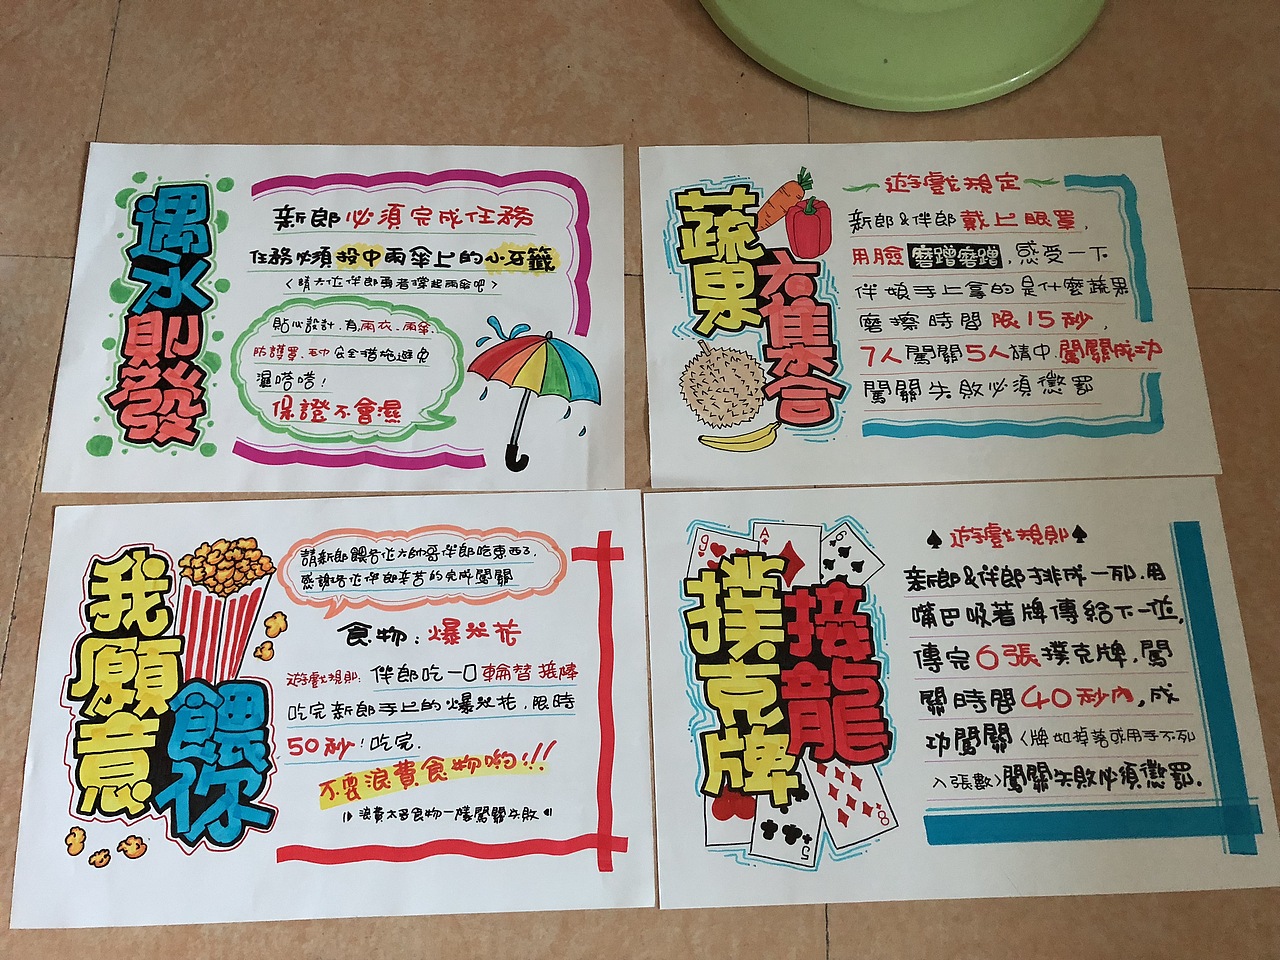 遇水則發
新郎必須完成任務
任務必須投中雨傘上的小牙籤
<請六位伴郎勇者撐起雨傘吧>
貼心設計.有雨衣.雨傘.
防護罩.毛巾安全措施避免
濕嗒嗒!
保證不會濕
蔬果
大集合
遊戲規定
新郎&伴郎戴上眼罩,
用臉磨蹭磨蹭,感受一下
伴娘手上拿的是什麼蔬果
磨擦時間限15秒,
7人闖關5人猜中.闖關成功
闖關失敗必須懲罰
我願意
餵你
請新郎餵各位大帥哥伴郎吃東西了.
感謝各位伴郎辛苦的完成闖關
食物:爆米花
遊戲規則:伴郎吃一口輪替接棒
吃完新郎手上的爆米花.限時
50秒!吃完.
不要浪費食物喲!!!
浪費太多食物一樣闖關失敗
9
A
6
撲克牌
接龍
5
8
♠遊戲規則♠
新郎&伴郎排成一列.用
嘴巴吸著牌傳給下一位,
傳完6張撲克牌.闖
關時間40秒內,成
功闖關<牌如掉落或用手不列
入張數>闖關失敗必須懲罰.